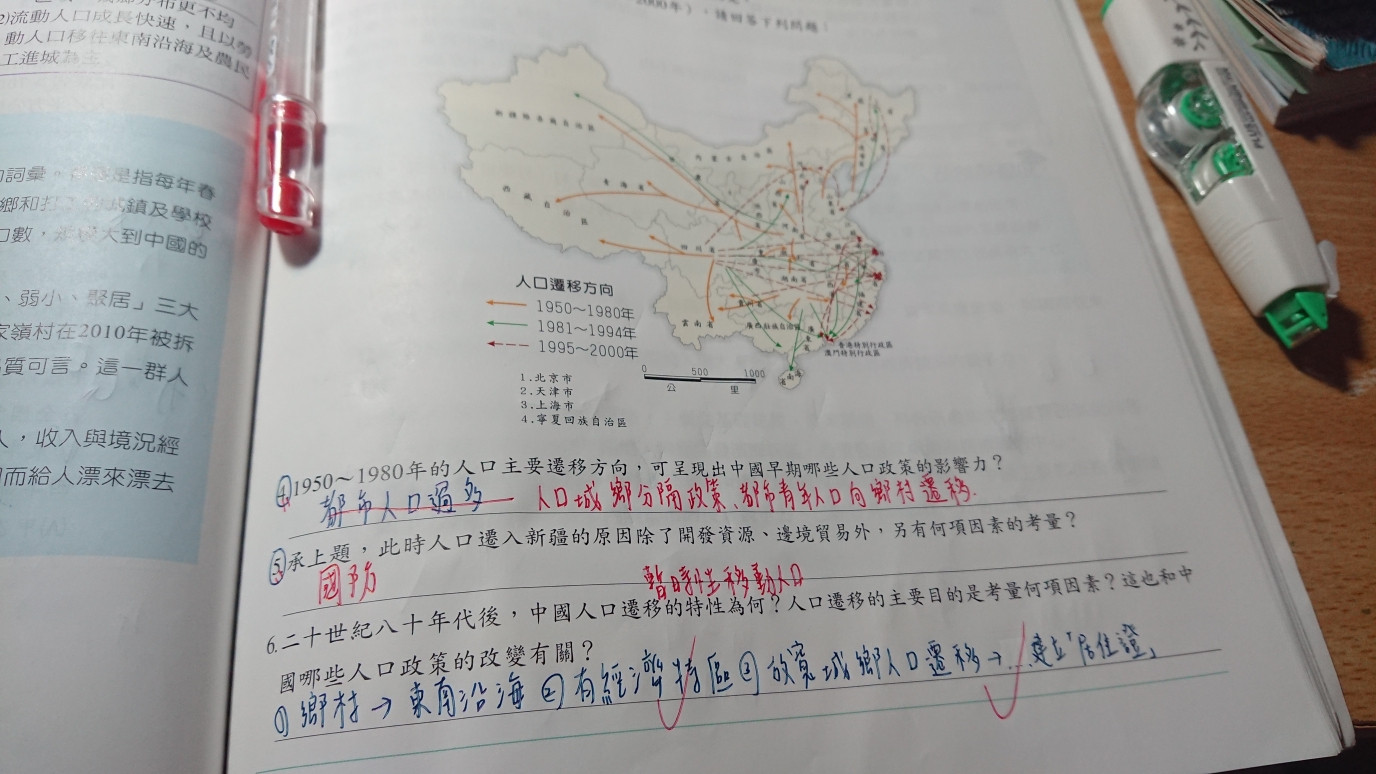 布更不均
2)流動人口成長快速，且以勞
動人口移往東南沿海及農民
工進城為主
詞彙。
是指每年春
鄉和
鎮及學校
口數，
大到中國的
、弱小、聚居」三大
家嶺村在2010年被拆
質可言。這一群人
人，收入與境況經
而給人漂來漂去
2000年），請回答下列問題：
新疆維吾爾自治區
內蒙古自治區
青海省
西藏自治區
四川省
湖南省
雲南省
廣西壯族自治區
香港特別行政區
澳門特別行政區
海南省
人口遷移方向
1950～1980年
1981～1994年
1995～2000年
0 500 1000
公 里
1.北京市
2.天津市
3.上海市
4.寧夏回族自治區
4.1950～1980年的人口主要遷移方向，可呈現出中國早期哪些人口政策的影響力？
都市人口過多 人口城鄉分隔政策、都市青年人口向鄉村遷移.
5.承上題，此時人口遷入新疆的原因除了開發資源、邊境貿易外，另有何項因素的考量？
國防
暫時性移動人口
6.二十世紀八十年代後，中國人口遷移的特性為何？人口遷移的主要目的是考量何項因素？這也和中
國哪些人口政策的改變有關？
①鄉村→東南沿海②有經濟特區③放寬城鄉人口遷移→...建立「居住證」
PLUS